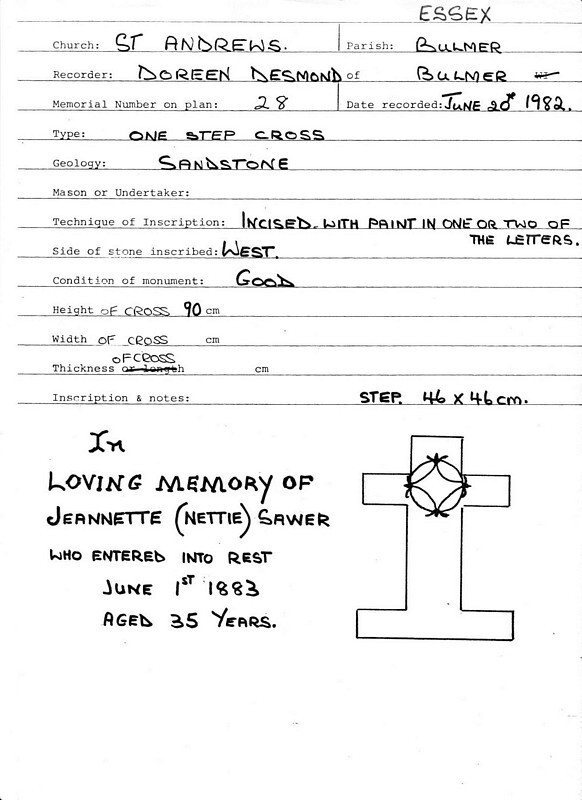 ESSEX
Church: ST ANDREWS. Parish: BULMER
Recorder: DOREEN DESMOND of BULMER
Memorial Number on plan: 28 Date recorded: JUNE 20th 1982.
Type: ONE STEP CROSS
Geology: SANDSTONE
Mason or Undertaker:
Technique of Inscription: INCISED. WITH PAINT IN ONE OR TWO OF
THE LETTERS.
Side of stone inscribed: WEST.
Condition of monument: GOOD
Height OF CROSS 90 cm
Width OF CROSS cm
OF CROSS
Thickness or length cm
Inscription & notes: STEP. 46 x 46 cm.
In
LOVING MEMORY OF
JEANNETTE (NETTIE) SAWER
WHO ENTERED INTO REST
JUNE 1ST 1883
AGED 35 YEARS.